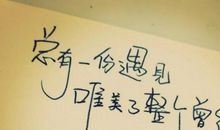 总有一份遇见
唯美了整个曾